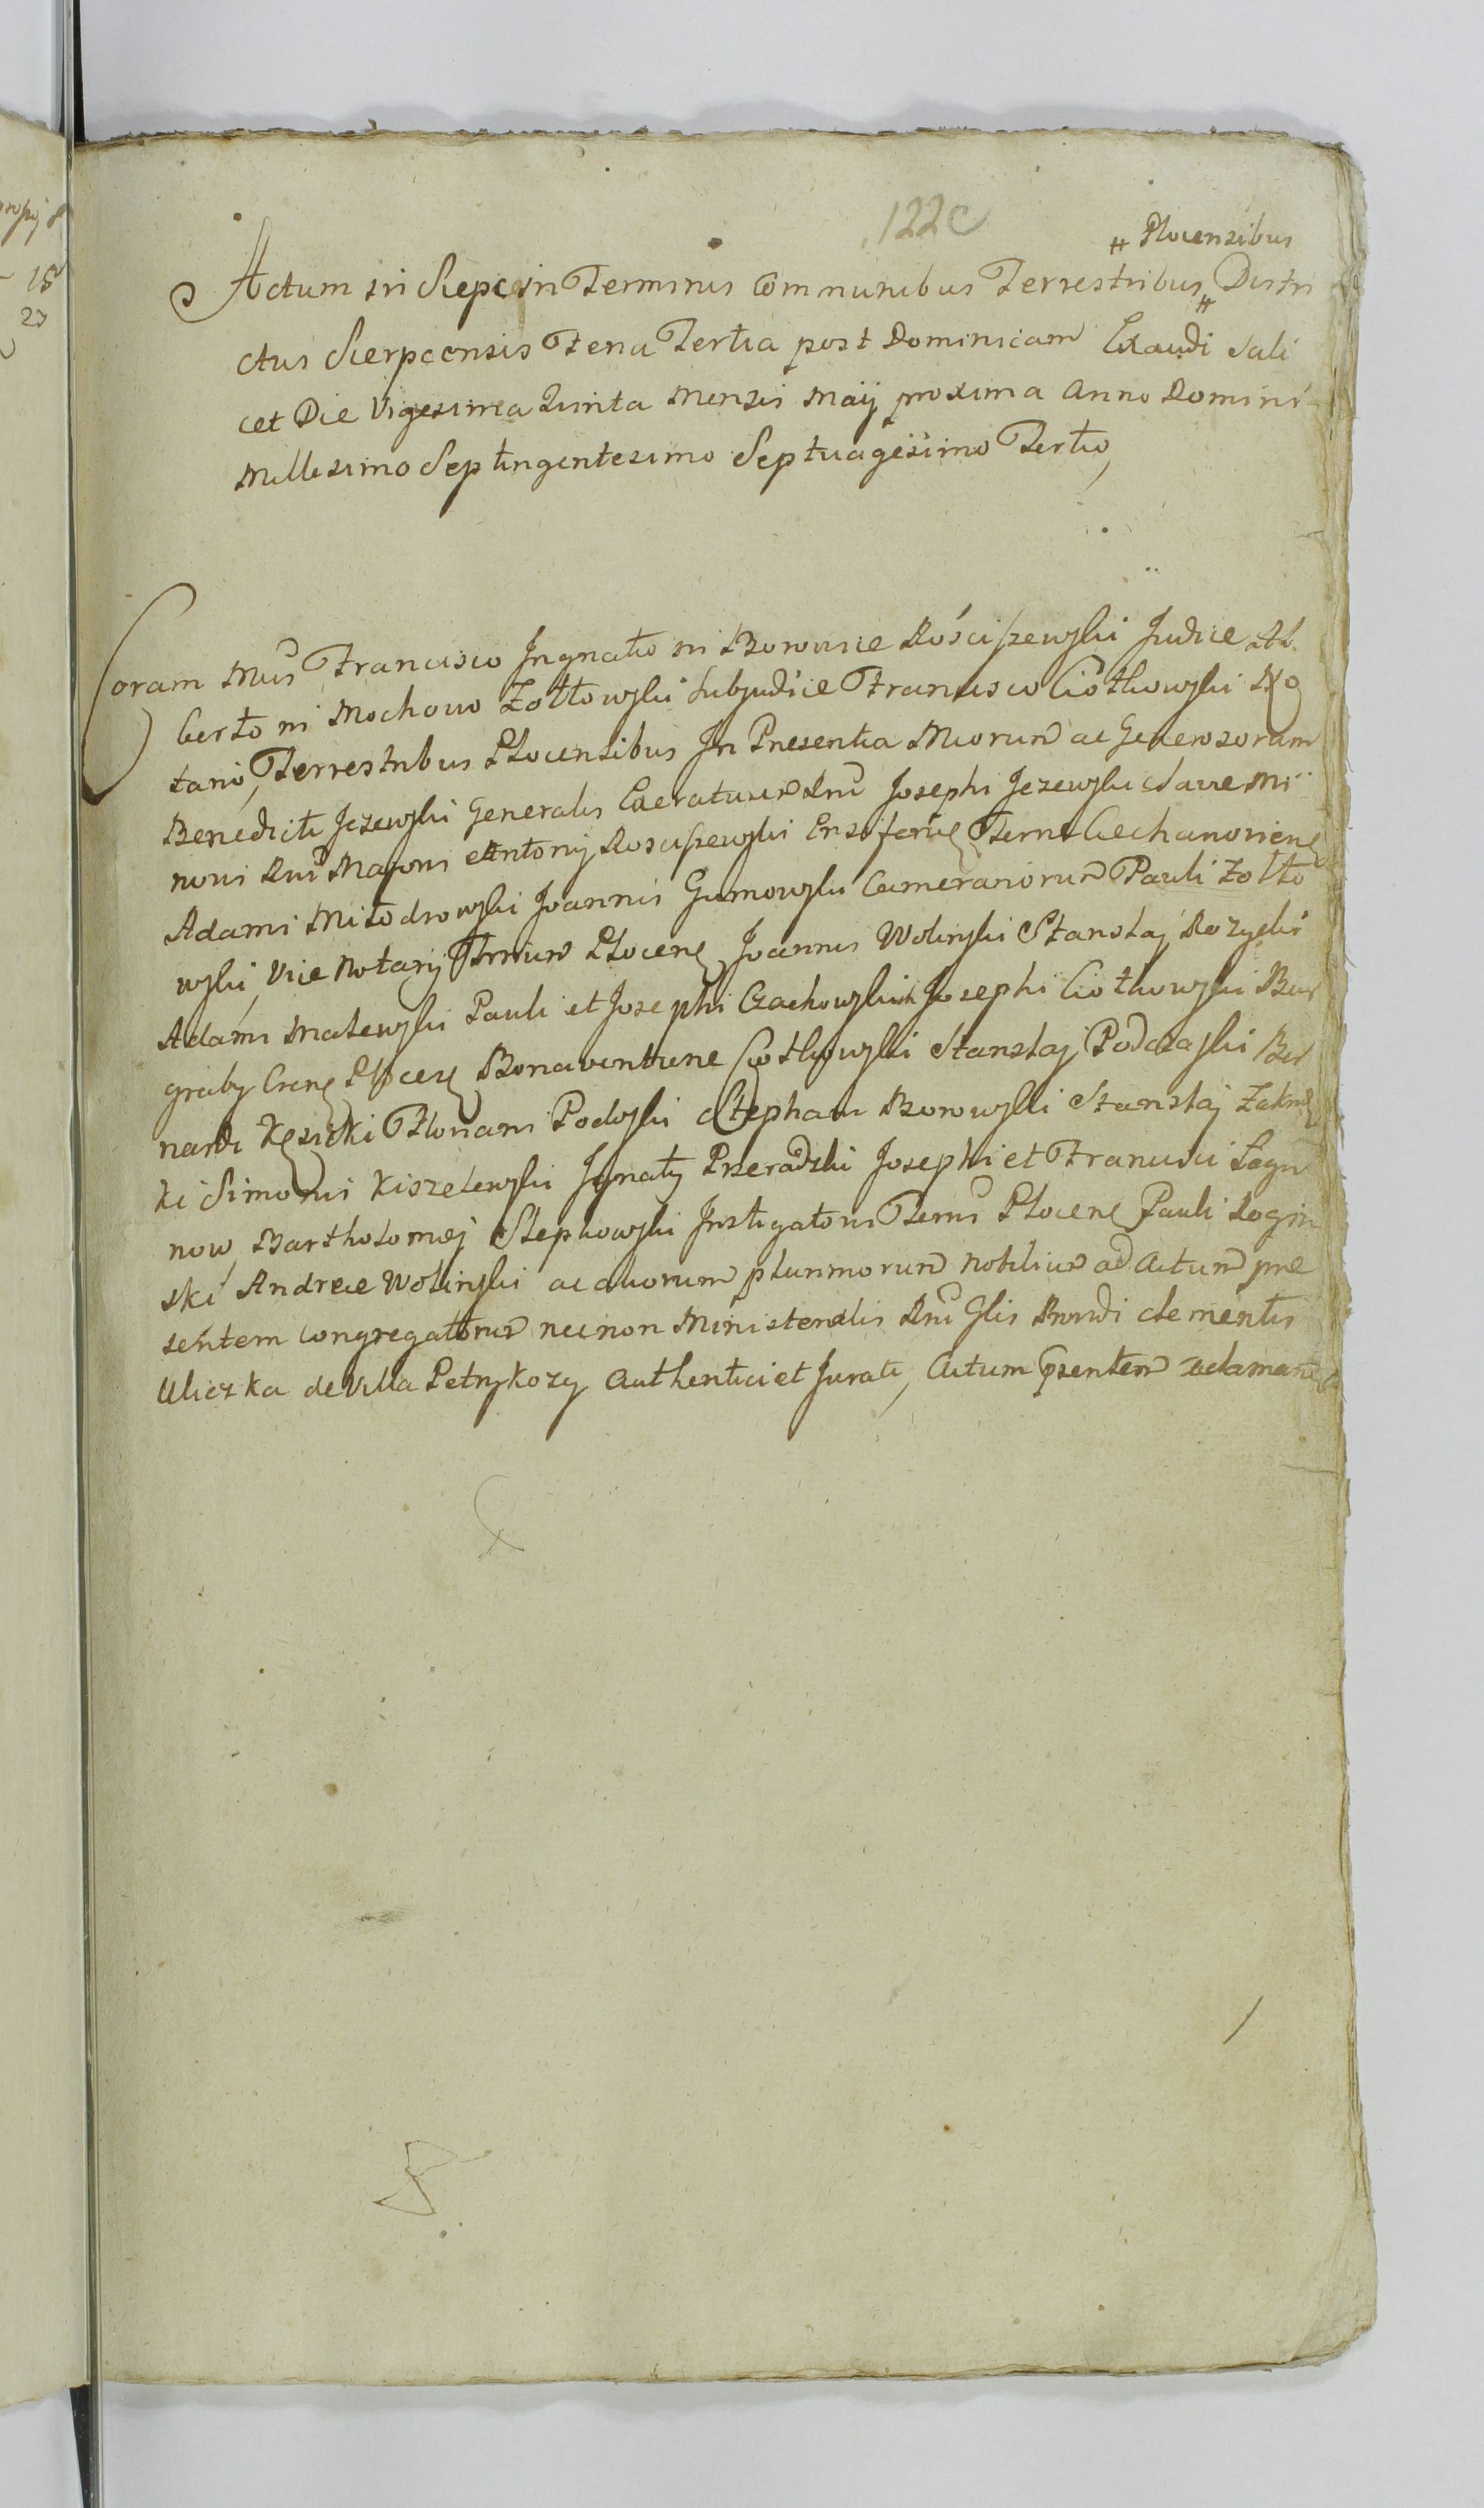 122c
# Plocensibus
Actum in Sierpc in Terminis Communibus Terrestribus # Distri
ctus Sierpcensis Feria Tertia post Dominicam Exaudi Scili
cet Die Vigesima Quinta Mensis Maij proxima Anno Domini
Millesimo Septingentesimo Septuagesimo Tertio,
Coram Francisco Ingnatio in Borowice Rósciszewski Judice Al
berto in Mochowo Zołtowski Subjudice Francisco Ciołkowski No
tario, Terrestribus Plocensibus In Presentia ac Generosorum
Benedicti Jezewski Generalis Josephi Jezewski
Majoris Antonij Rosciszewski Ensiferi Ciechanoviens
Adami Miłodrowski Joannis Gumowski Camerariorum Pauli Zołto
wski, Vice Notarij Plocens Joannis Wolinski Stanslaj Rozycki
Adami Malewski Pauli et Josephi Czachowskich Josephi Ciołkowski Bur
graby Plocens Bonaventurae Ciołkowski Stanslaj Podczaski Ber
nardi Kęsicki Floriani Podoski Stephani Borowski Stanslaj
ki Simonis Kiszelewski Ignatij Przeradzki Josephi et Francisci Łagu
now, Bartholomej Stepkowski Instigatoris Plocens Pauli Rogin
ski Andreae Wolinski ac aliorum plurimorum Nobilium ad Actum pre
sentem congregatorum necnon Ministerialis Clementis
Uliczka de Villa Petrykozy Authentici et Jurati, Actum